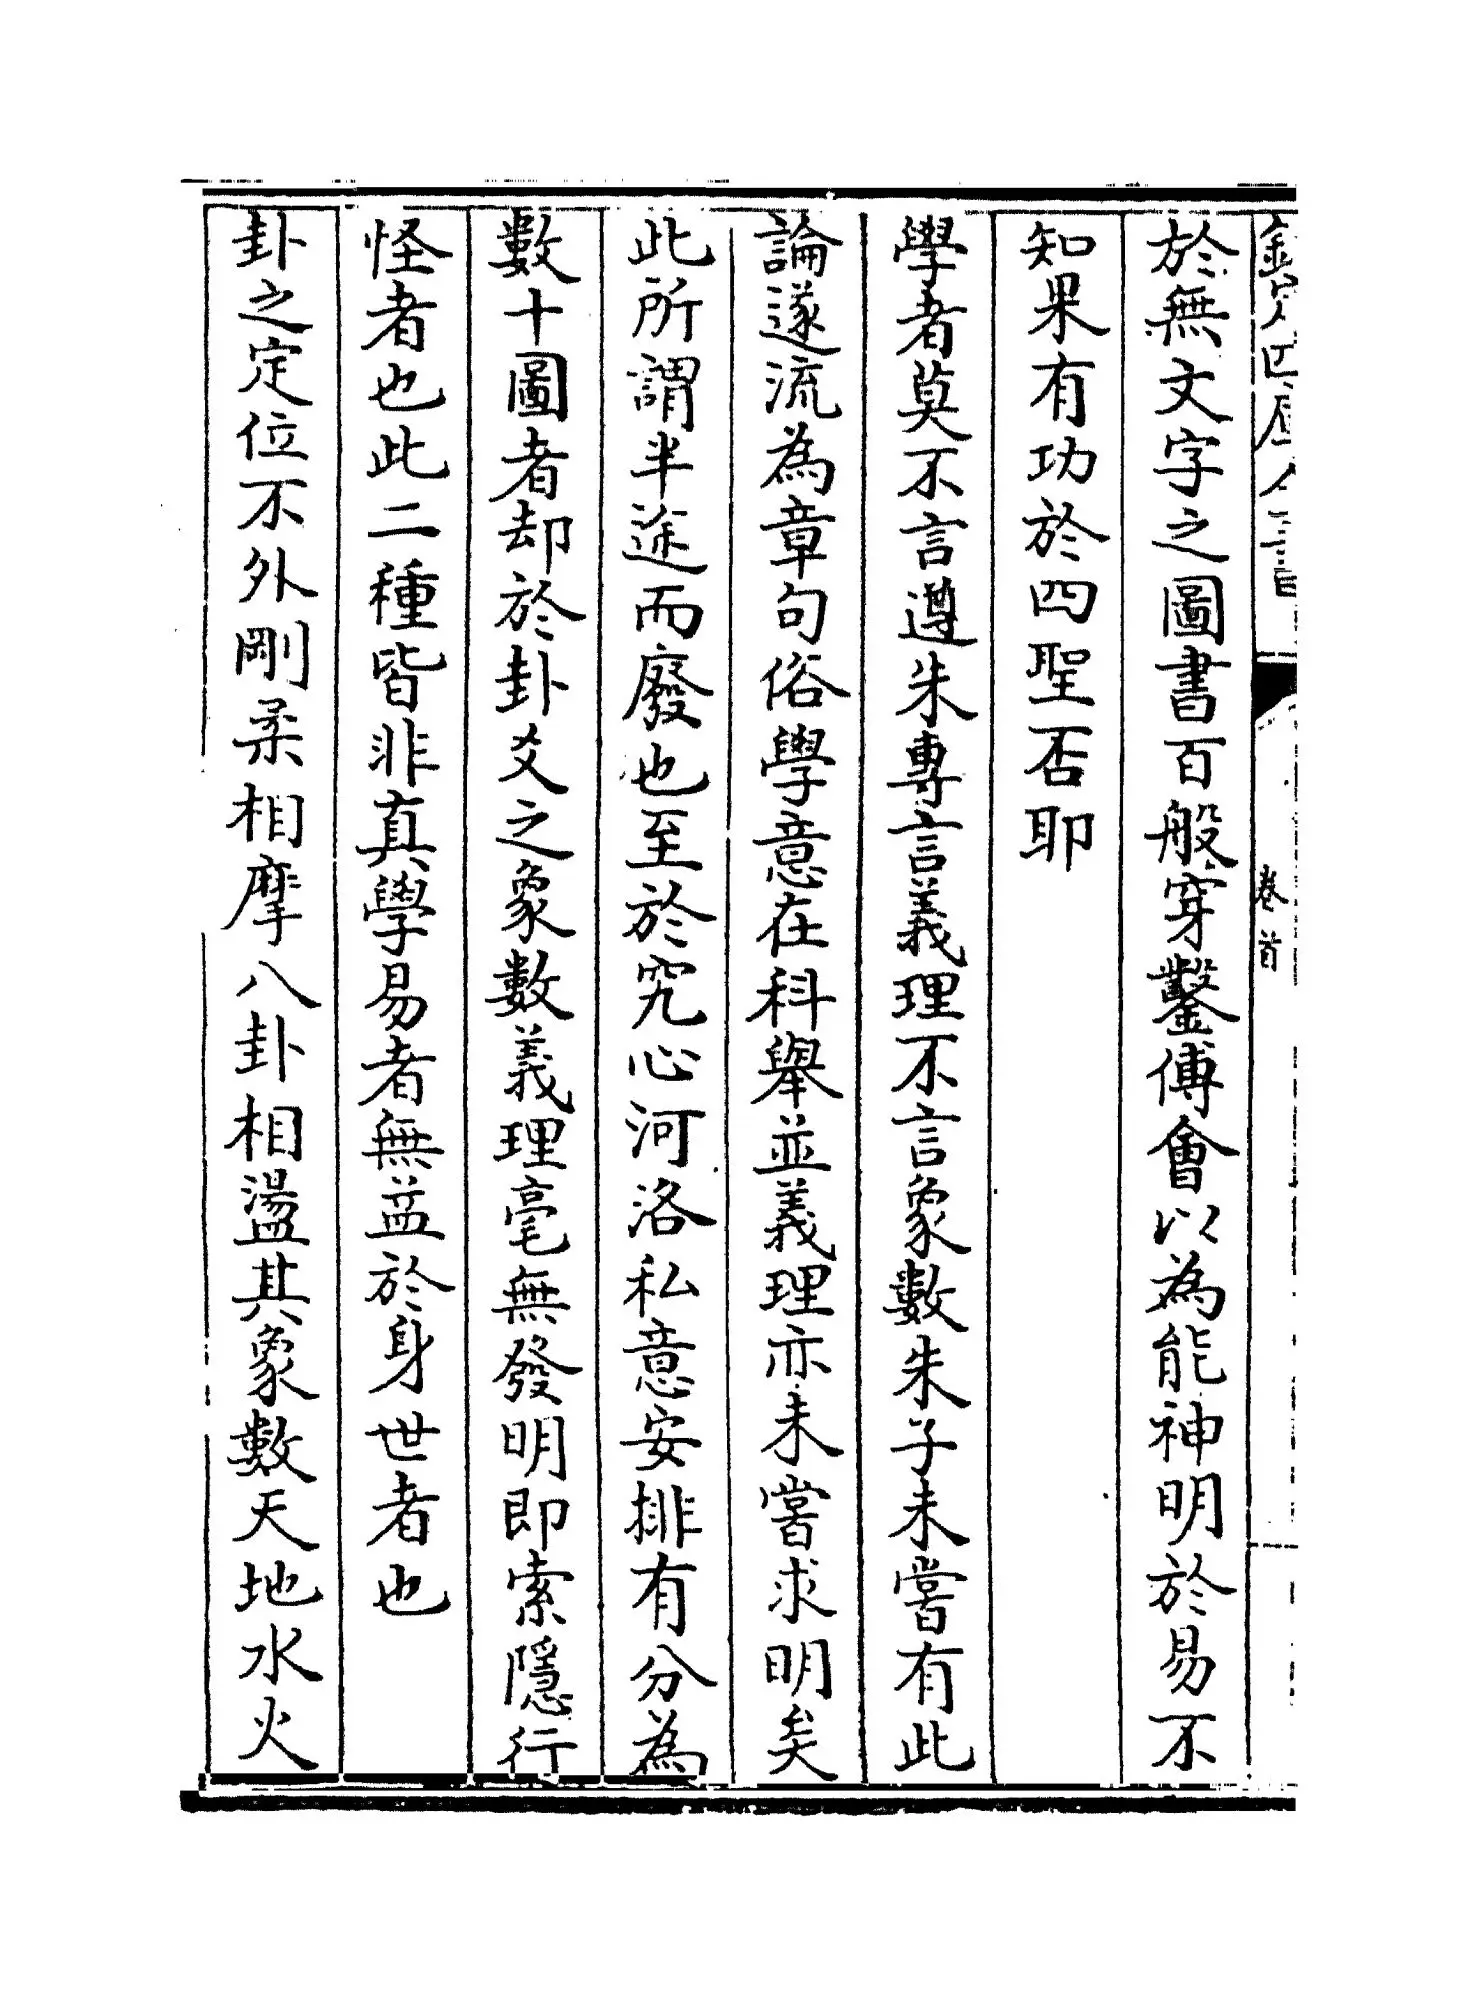 欽定四庫全書
卷首
於無文字之圖書百般穿鑿傅會以為能神明於易不
知果有功於四聖否耶
學者莫不言遵朱專言義理不言象數朱子未嘗有此
論遂流為章句俗學意在科舉並義理亦未嘗求明矣
此所謂半途而廢也至於究心河洛私意安排有分為
數十圖者却於卦爻之象數義理毫無發明即索隱行
怪者也此二種皆非真學易者無益於身世者也
卦之定位不外剛柔相摩八卦相盪其象數天地水火